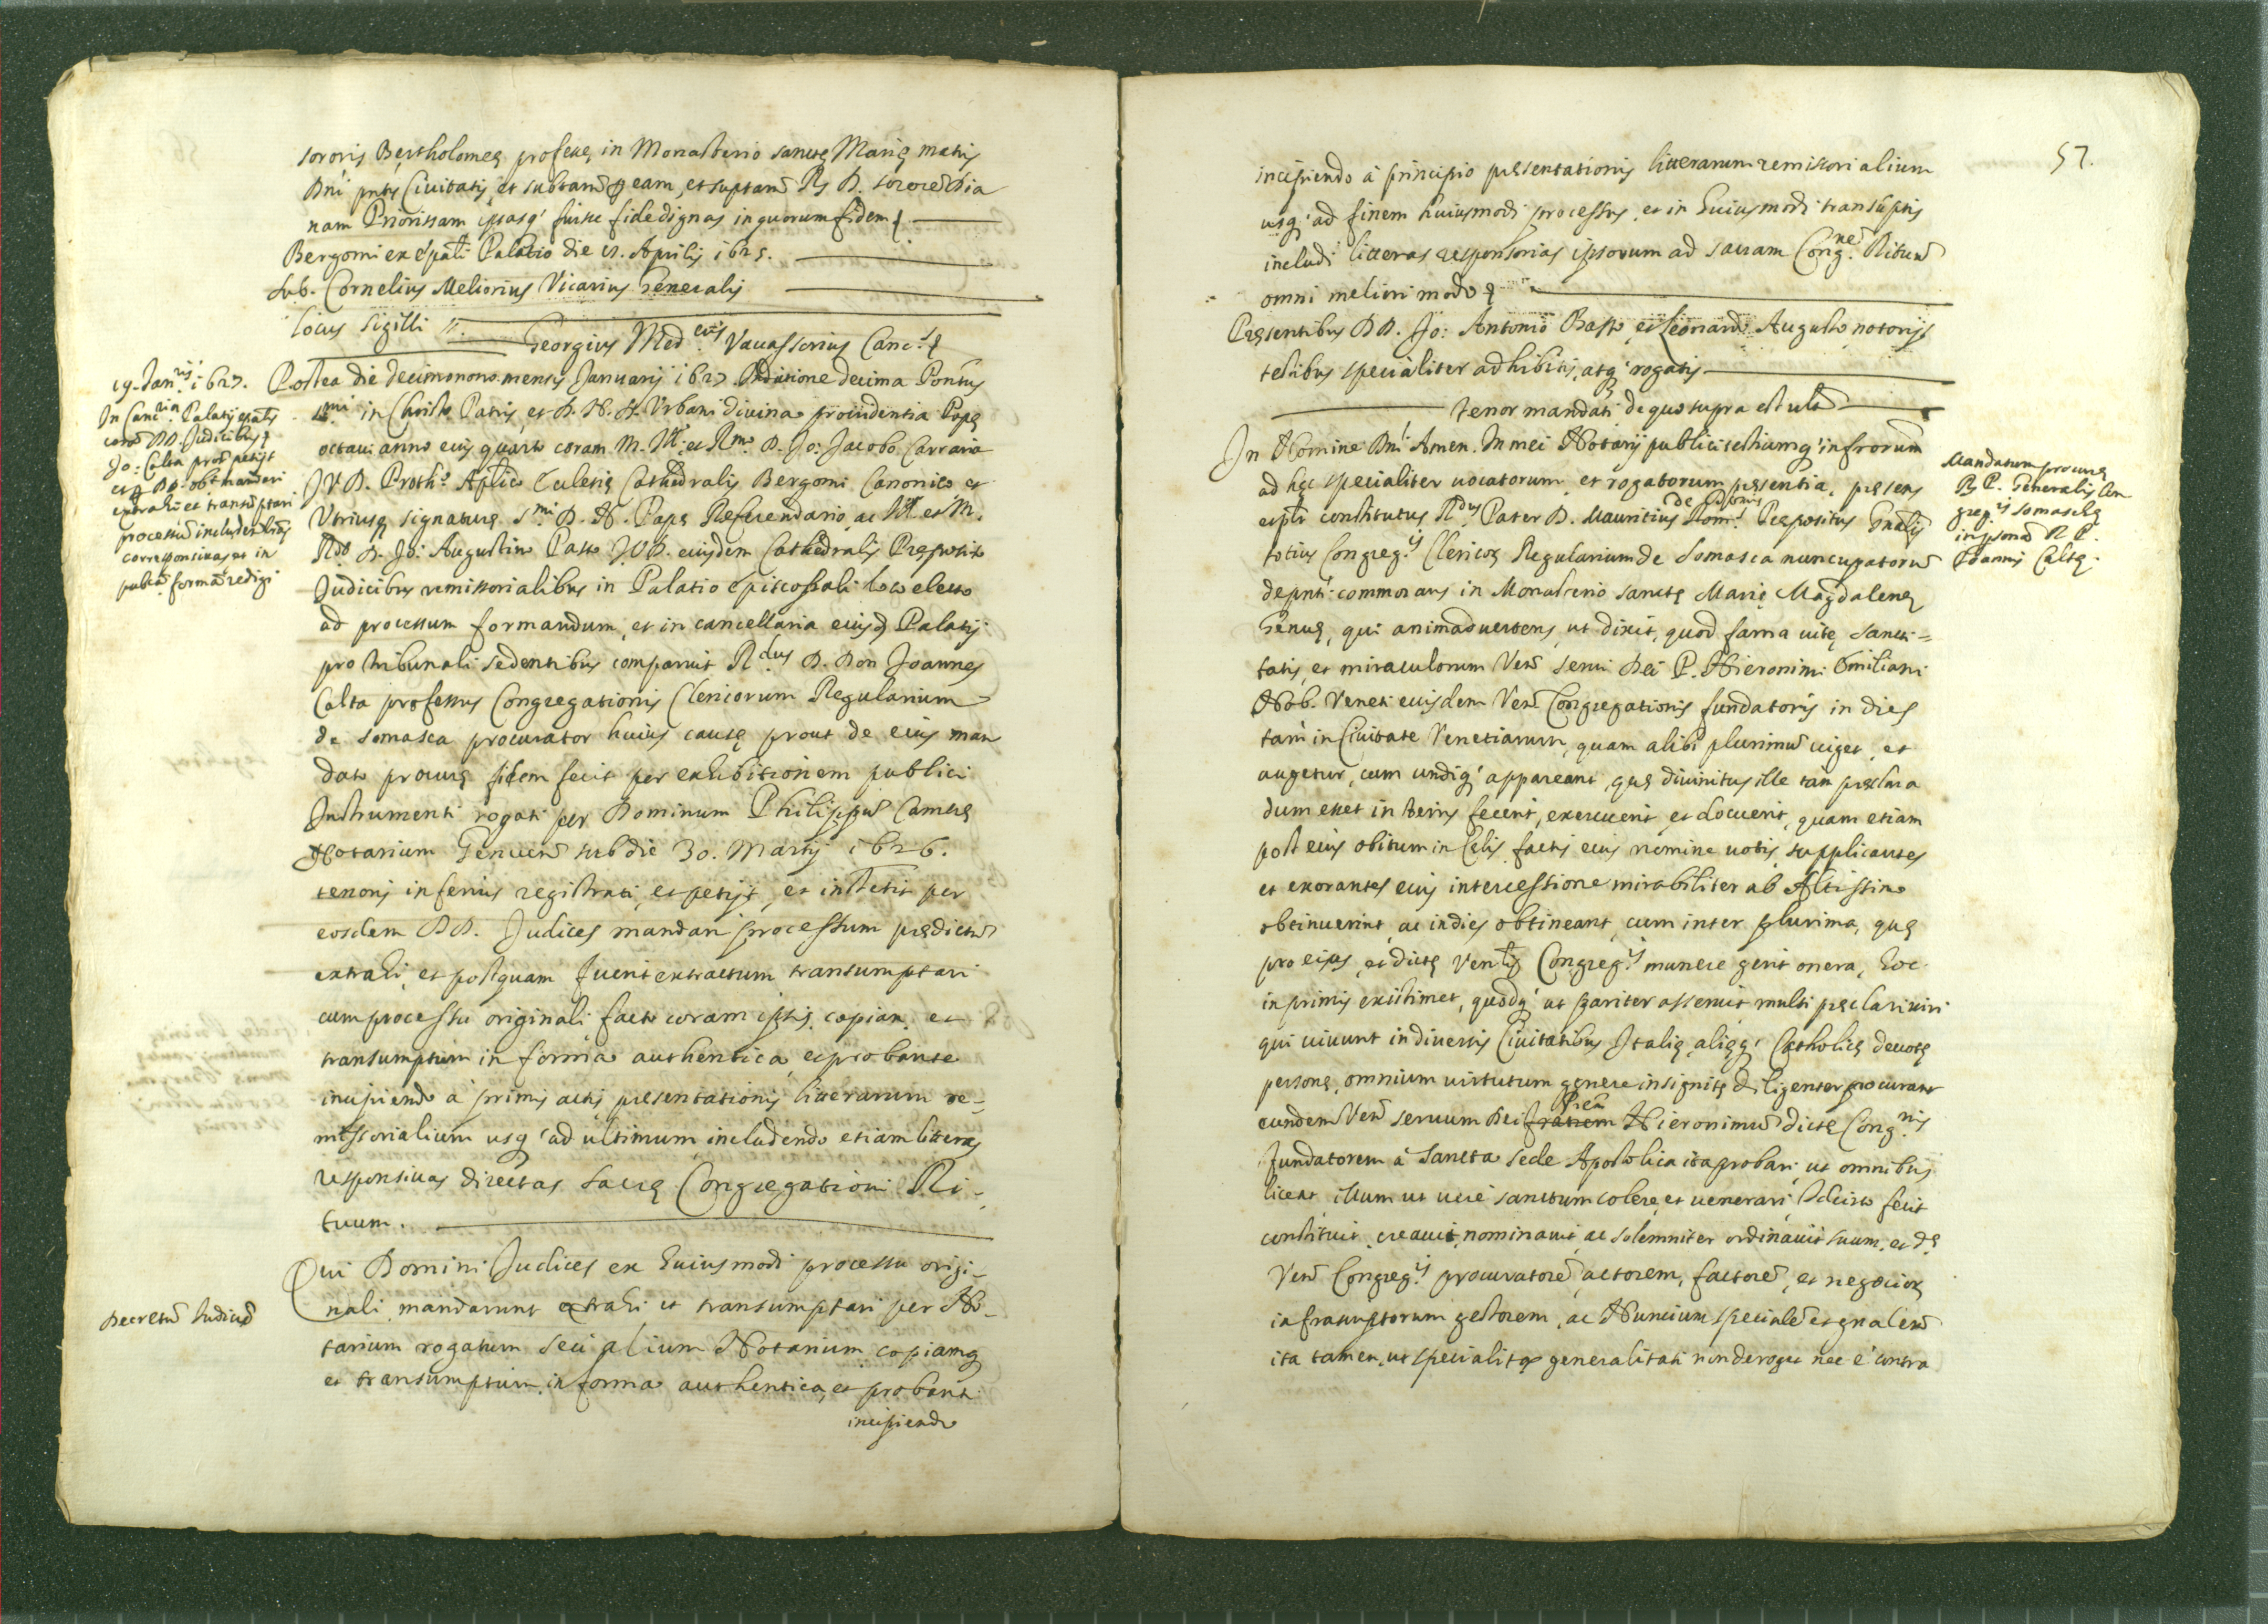 sororis Bertholomeę professę in Monasterio sanctę Marię matris
Dni pntis Ciuitatis, et subtam ꝑ eam, et suptam R. D. sororem Dia
nam Priorissam ipsasq' fuisse fide dignas in quorum fidem
Bergomi ex ep̃ali Palatio die Aprilis 1625.
sub. Cornelius Meliorius Vicarius Generalis
locus sigilli
Georgius Med.cus Vauassorius Canc.s
19. Jan.rij 1627.
In Canc.ria Palatij epalis
coram DD. Judicibus
Jo: Calta proc petijt
et ꝑ DD. obt mandari
extrahi et transũptari
processũ includendo lras
corresponsiuas, et in
publica forma redigi
Postea die decimonono mensis Januarij 1627. Inditione decima Pontus
s.mi in Christo Patris, et D. N. D. Vrbani diuina prouidentia Papę
octaui anno eius quarto coram M. Ill. et R.mo D. Jo: Jacobo Carraria
J. V. D. Proth.o Aplico Ecclesię Cathedralis Bergomi Canonico et
Vtriusq signaturę S.mi D. N. Papę Referendario, ac Ill. et M.
R.do D. Jo: Augustino Passo J. V. D. eiusdem Cathedralis Preposito
Judicibus remissorialibus in Palatio episcopali loco electo
ad processum formandum, et in cancellaria eiusd Palatij
pro tribunali sedentibus comparuit R.dus D. Don Joannes
Calta professus Congregationis Clericorum Regularium
de somasca procurator huius causę prout de eius man
dato procurę fidem fecit per exhibitionem publici
Instrumenti rogati per Dominum Philippũ Camerę
Notarium Genuen sub die 30. Martij 1626.
tenoris inferius registrati, et petijt, et institit per
eosdem DD. Judices mandari processum prędictũ
extrahi, et postquam fuerit extractum transumptari
cum processu originali facto coram ipsis, copiam, et
transumptum in forma authentica, et probante
incipiendo à primis actis pręsentationis litterarum re=
missorialium usq' ad ultimum, includendo etiam litteras
responsiuas directas sacrę Congregationi Ri=
tuum.
Decretũ Judicũ
Qui Domini Judices ex huiusmodi processu origi=
nali mandarunt extrahi et transumptari per No=
tarium rogatum seu alium Notarium copiamq
et transumptum, in forma authentica, et probanti
incipiendo
57.
incipiendo à principio pręsentationis litterarum remissorialium
usq' ad finem huiusmodi processus, et in huiusmodi transũptis
includi litteras responsorias ipsorum ad sacram Cong.nem Rituũ
omni meliori modo
Pręsentibus DD. Jo: Antonio Basso, et Leonardo Augusto notorijs
testibus specialiter adhibitis, atq' rogatis
Tenor mandati de quo supra est ult
In Nomine Dni Amen. In mei Notarij publici testiumq' infrorum
ad hęc specialiter uocatorum, et rogatorum pręsentia, pręsens
et ꝑlr constitutus R.dus Pater D. Mauritius de Domis Prępositus Gnalis
totius Congreg.is Clericoꝝ Regularium de Somasca nuncupatorũ
de pnti commorans in Monasterio sanctę Marię Magdalenę
Genuę, qui animaduertens, ut dixit, quod fama uitę sancti=
tatis, et miraculorum Ven serui Dei P. Hieronimi Emiliani
Nob. Veneti eiusdem Ven Congregationis fundatoris in dies
tam in Ciuitate Venetiarum, quam alibi plurimũ uiget, et
augetur, cum undiq' appareant, quę diuinitus ille tam pręclara
dum esset in terris fecerit, exercuerit, et docuerit, quam etiam
post eius obitum in Cęlis, factis eius nomine uotis supplicantes
et exorantes eius intercessione mirabiliter ab Altissimo
obtinuerint, ac in dies obtineant, cum inter plurima, quę
pro eius, et dictę Ven Congreg.is munere gerit onera, hoc
in primis existimet, quodq' ut pariter asseruit multi pręclari uiri
qui uiuunt in diuersis Ciuitatibus Italię, alięq' Catholicę deuotę
personę, omnium uirtutum genere insignitę diligenter procurant
eundem Ven seruum Dei fratrem Prem Hieronimũ dictę Cong.nis
fundatorem à Sancta sede Apostolica ita probari, ut omnibus
liceat illum ut uerè sanctum colere, et uenerari, Idcirco fecit
constituit, creauit, nominauit, ac solemniter ordinauit suum, et dę
Ven Congreg.is procuratorẽ, actorem, factorẽ, et negocioꝝ
infrascriptorum gestorem, ac Nuncium specialẽ et gnalem
ita tamen, ut specialitas generalitati non deroget nec è contra
Mandatum procurę
R. P. Generalis Con
greg.is Somaschę
in psona R. P.
Joannis Caltę.